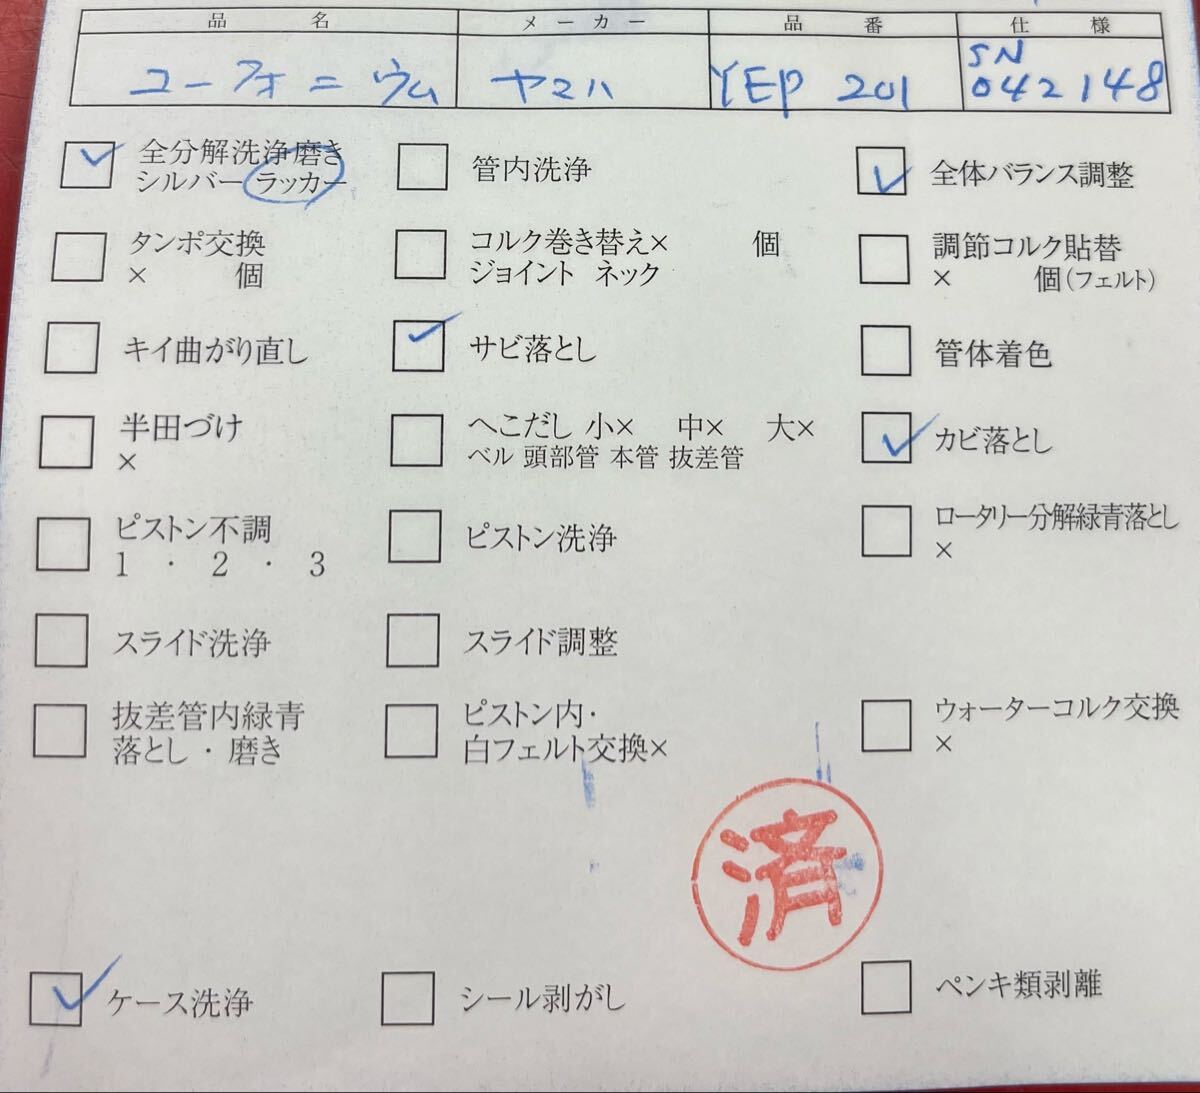 品名 メーカー 品番 仕様
ユーフォニウム ヤマハ YEP 201 SN 042148
全分解洗浄磨き
シルバー ラッカー
管内洗浄
全体バランス調整
タンポ交換
× 個
コルク巻き替え× 個
ジョイント ネック
調節コルク貼替
× 個(フェルト)
キイ曲がり直し
サビ落とし
管体着色
半田づけ
×
へこだし 小× 中× 大×
ベル 頭部管 本管 抜差管
カビ落とし
ピストン不調
1 · 2 · 3
ピストン洗浄
ロータリー分解緑青落とし
×
スライド洗浄
スライド調整
抜差管内緑青
落とし・磨き
ピストン内・
白フェルト交換×
ウォーターコルク交換
×
済
ケース洗浄
シール剥がし
ペンキ類剥離